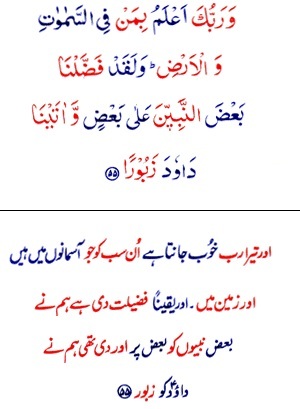 وَرَبُّكَ اَعْلَمُ بِمَنْ فِي السَّمٰوٰتِ
وَ الْاَرْضِ ؕ وَلَقَدْ فَضَّلْنَا
بَعْضَ النَّبِيّٖنَ عَلٰى بَعْضٍ وَّ اٰتَيْنَا
دَاوٗدَ زَبُوْرًا ۝۵۵
اور تیرا رب خُوب جانتا ہے اُن سب کو جو آسمانوں میں ہیں
اور زمین میں ۔ اور یقیناً فضیلت دی ہے ہم نے
بعض نبیوں کو بعض پر اور دی تھی ہم نے
داؤدؑ کو زبور ۝۵۵